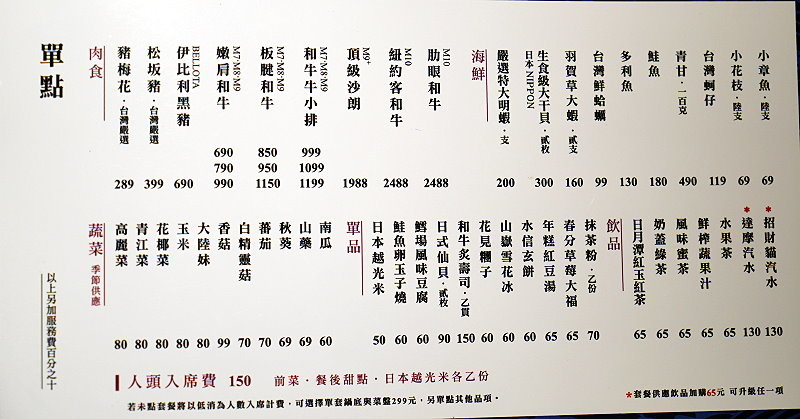 單點
肉食
豬梅花・台灣嚴選 289
松坂豬・台灣嚴選 399
BELLOTA
伊比利黑豬 690
M7・M8・M9
嫩肩和牛 690 790 990
M7・M8・M9
板腱和牛 850 950 1150
M7・M8・M9
和牛牛小排 999 1099 1199
M9+
頂級沙朗 1988
M10
紐約客和牛 2488
M10
肋眼和牛 2488
海鮮
嚴選特大明蝦・支 200
生食級大干貝・貳枚 300
日本 NIPPON
羽賀草大蝦・貳支 160
台灣鮮蛤蠣 99
多利魚 130
鮭魚 180
青甘・一百克 490
台灣蚵仔 119
小花枝・陸支 69
小章魚・陸支 69
蔬菜 季節供應
高麗菜 80
青江菜 80
花椰菜 80
玉米 80
大陸妹 80
香菇 99
白精靈菇 70
番茄 70
秋葵 69
山藥 69
南瓜 60
單品
日本越光米 50
鮭魚卵玉子燒 60
鱈場風味豆腐 60
日式仙貝・貳枚 90
和牛炙壽司・乙貫 150
花見糰子 60
山嶽雪花冰 60
水信玄餅 60
年糕紅豆湯 65
春分草莓大福 65
抹茶粉・乙份 70
飲品
日月潭紅玉紅茶 65
奶蓋綠茶 65
風味蜜茶 65
鮮榨蔬果汁 65
水果茶 65
*達摩汽水 130
*招財貓汽水 130
以上另加服務費百分之十
人頭入席費 150 前菜・餐後甜點・日本越光米各乙份
若未點套餐將以低消為人數入席計費，可選擇單套鍋底與菜盤299元，另單點其他品項。
*套餐供應飲品加購65元 可升級任一項